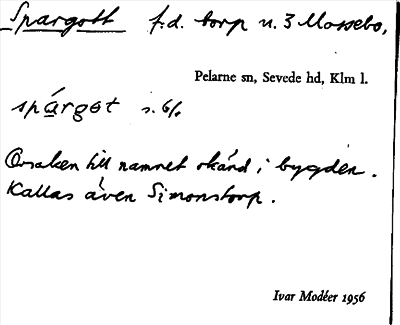 Spargott f.d. torp u. 3 Mossebo,
Pelarne sn, Sevede hd, Klm l.
spárgot s. 6/.
Orsaken till namnet okänd i bygden.
Kallas även Simonstorp.
Ivar Modéer 1956